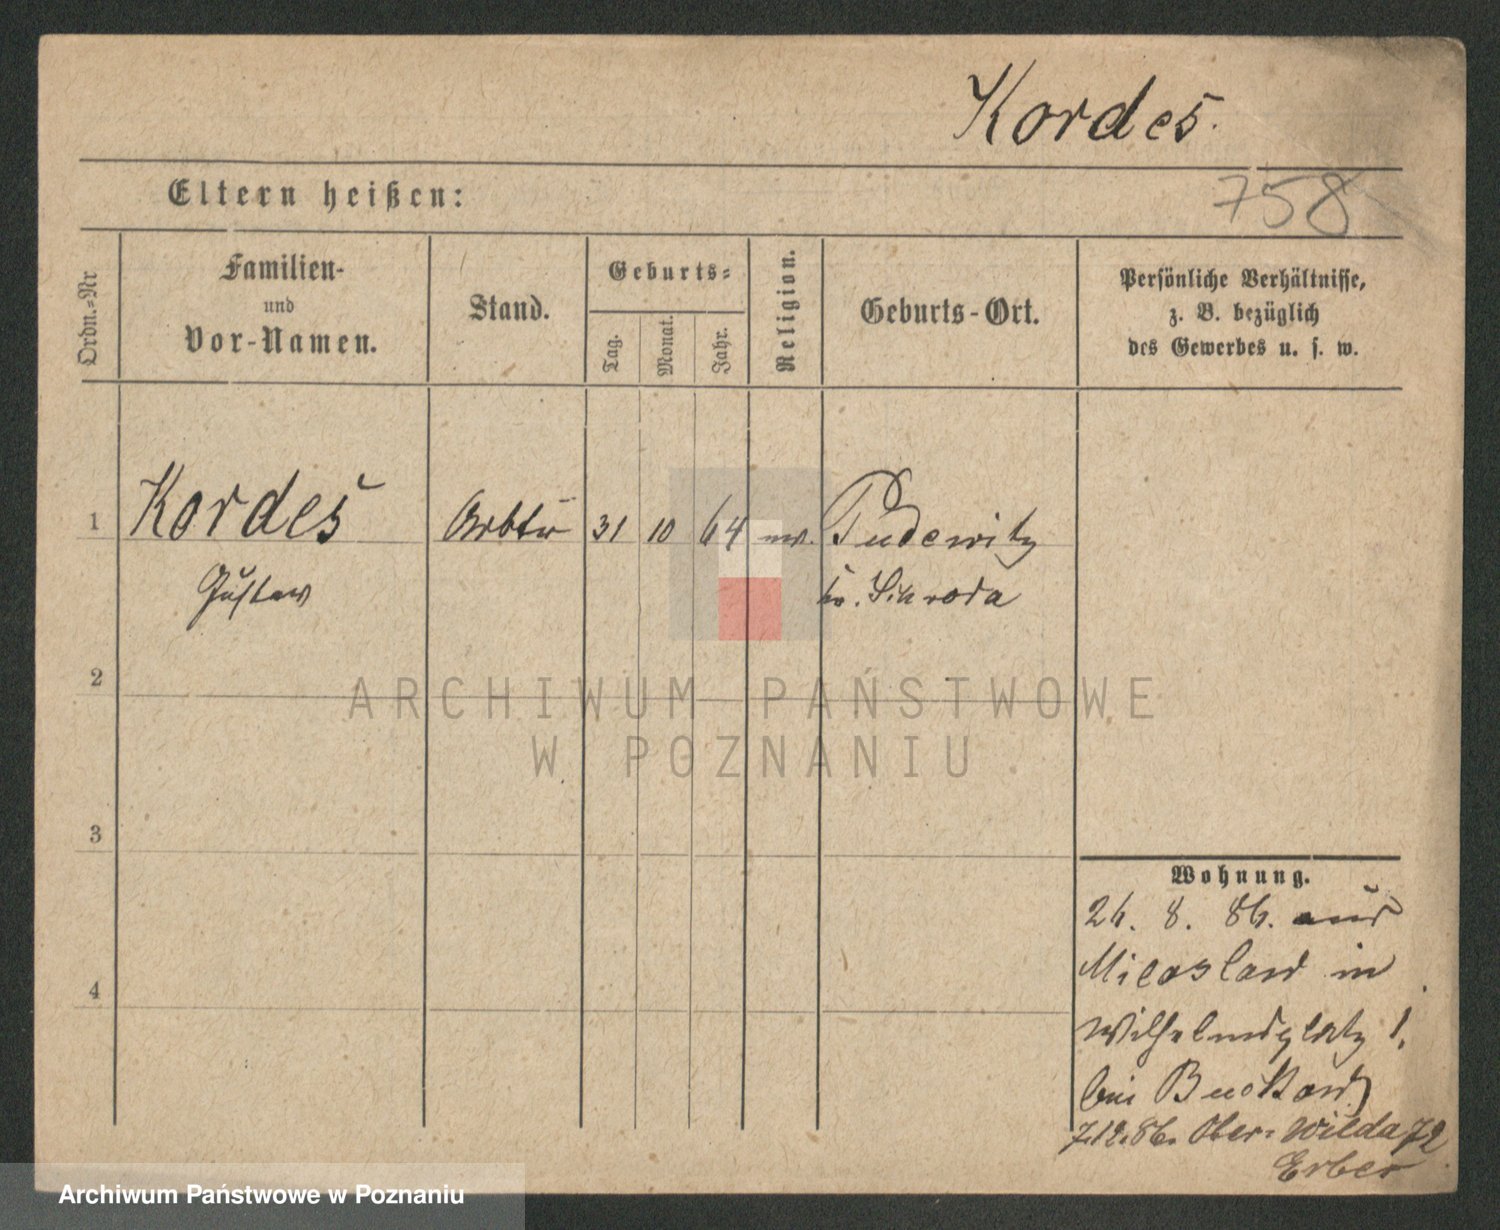 Kordes.
Eltern heißen:
758
Ordn.-Nr
Familien-
und
Vor-Namen.
Stand.
Geburts-
Tag.
Monat.
Jahr.
Religion.
Geburts-Ort.
Persönliche Verhältnisse,
z. B. bezüglich
des Gewerbes u. s. w.
1
Kordes
31 10 64
Pudewitz
Gustav
Kr. Schroda
2
ARCHIWUM PAŃSTWOWE
W POZNANIU
3
Wohnung.
26. 8. 86. aus
Miloslaw in
4
Wilhelmsplatz 1.
bei
7.12.86. Ober-Wilda 72
Erber
Archiwum Państwowe w Poznaniu